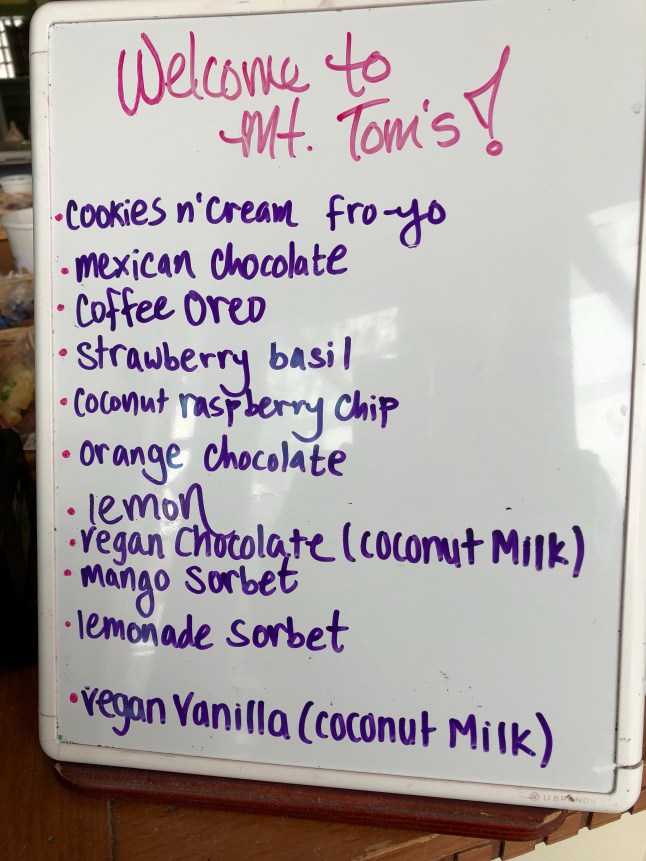 Welcome to
Mt. Tom's!
•cookies n'cream fro-yo
•mexican chocolate
•coffee oreo
•strawberry basil
•coconut raspberry chip
•orange chocolate
•lemon
•vegan chocolate (coconut Milk)
•mango sorbet
•lemonade sorbet
•vegan vanilla (coconut Milk)
U BRANDS